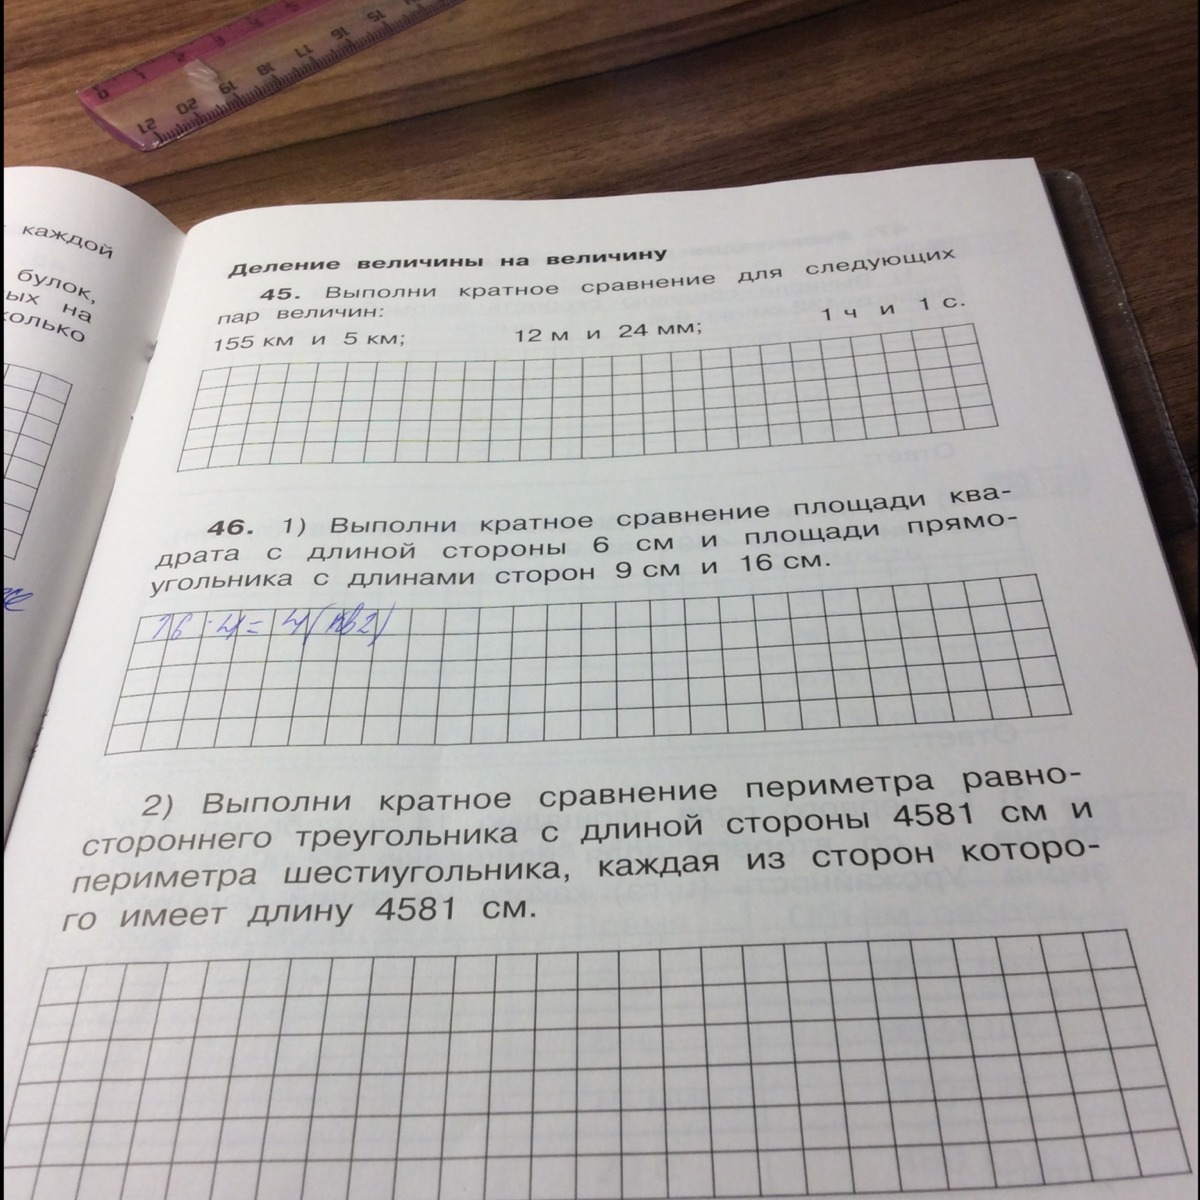 каждой
булок,
ых на
колько
Деление величины на величину
45. Выполни кратное сравнение для следующих
пар величин:
155 км и 5 км; 12 м и 24 мм; 1 ч и 1 с.
46. 1) Выполни кратное сравнение площади ква-
драта с длиной стороны 6 см и площади прямо-
угольника с длинами сторон 9 см и 16 см.
16 : 4 = 4
2) Выполни кратное сравнение периметра равно-
стороннего треугольника с длиной стороны 4581 см и
периметра шестиугольника, каждая из сторон которо-
го имеет длину 4581 см.
0 1 2 3 4 5
21 20 19 18 17 16 15